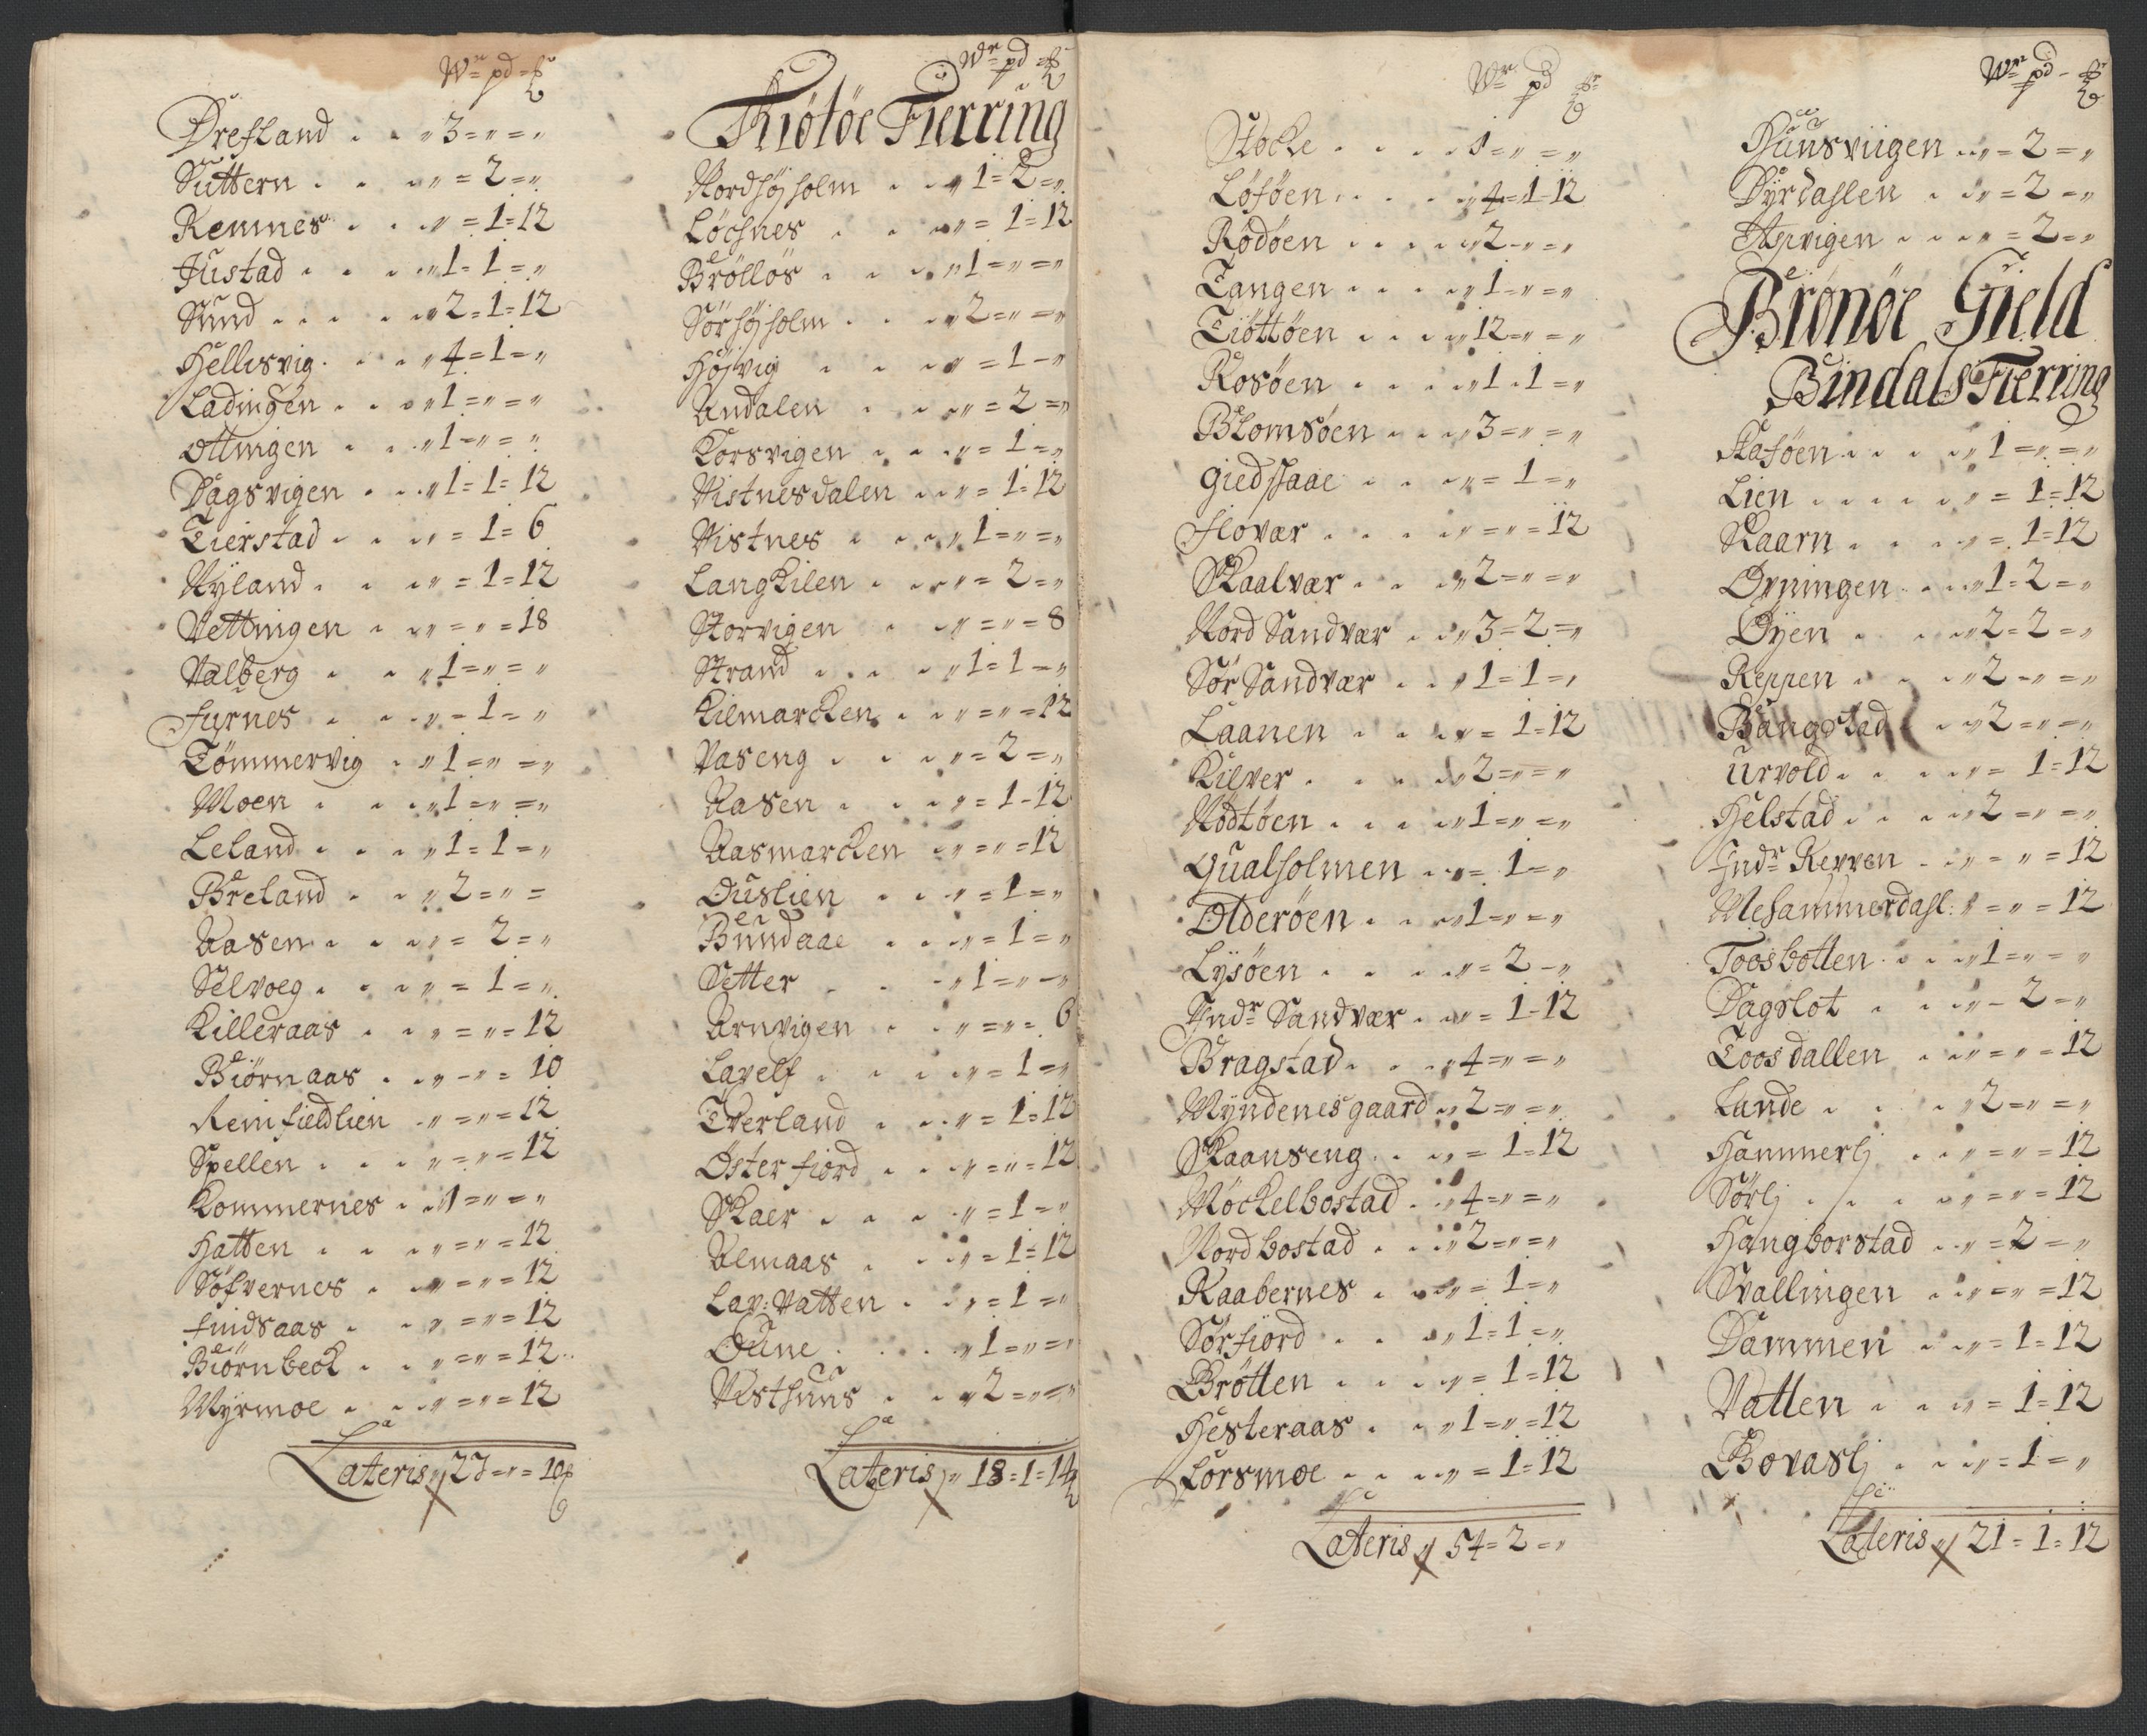 Wr pd =
Drefland . . „ 3 = „ = „
Suttern . . . „ = 2 = „
Remnes . . . „ = 1 = 12
Justad . . . „ 1 = 1 = „
Sund . . . . „ 2 = 1 = 12
Hellesvig . . . „ 4 = 1 = „
Ladingen . . . „ 1 = „ = „
Ottingen . . . „ 1 = „ = „
Dagsvigen . . . „ 1 = 1 = 12
Tierstad . . . „ = 1 = 6
Nÿland . . . „ = 1 = 12
Vettingen . . „ = „ = 18
Valberg . . „ 1 = „ = „
Furnes . . . „ = 1 = „
Tömmervig . „ 1 = „ = „
Moen . . . „ 1 = „ = „
Leland . . . „ 1 = 1 = „
Breland . . „ 2 = „ =
Aasen . . . „ = 2 = „
Selvoeg . . . „ = 1 = „
Killeraas . . „ = „ = 12
Biörnaas . . „ = „ = 10
Reinfieldlien . „ = „ = 12
Spellen . . . „ = „ = 12
Kommernes . . 1 = „ = „
Hatten . . . „ = „ = 12
Söfvernes . . „ = „ = 12
Findsaas . . „ = „ = 12
Biörnbeck . . „ = „ = 12
Myrmoe . . . „ = „ = 12
Lateris „ 27 = „ = 10
Wr pd =
Tiötöe Fierring
Nordhöjholm . . „ 1 = 2 = „
Löchnes . . . „ = 1 = 12
Brölløs . . . „ 1 = „ = „
Sörhöjholm . . „ 2 = „ = „
Höjvig . . . „ = 1 = „
Andalen . . . „ = 2 = „
Korsvigen . . . „ = 1 = „
Vistnesdalen . . „ = 1 = 12
Vistnes . . . „ 1 = „ = „
Langkilen . . . „ = 2 = „
Storvigen . . „ = „ = 8
Strand . . . „ 1 = 1 = „
Kilmarcken . . „ = „ = 12
Vaseng . . . „ = 2 = „
Aasen . . . „ = 1 = 12
Aasmarcken . „ = „ = 12
Ouslien . . . „ = 1 = „
Bundaae . . . „ = 1 = „
Setter . . . „ 1 = „ = „
Arnvigen . . „ = „ = 6
Lavelf . . . „ = 1 = „
Tverland . . . „ = 1 = 12
Österfiord . . „ = „ = 12
Skaer . . . „ = 1 = „
Almaas . . . „ = 1 = 12
Lav: Vatten . . „ = 1 = „
Oune . . . „ 1 = „ = „
Vesthuus . . „ 2 = „ = „
Lateris „ 18 = 1 = 14
Wr pd
Stocke . . . „ 1 = „ = „
Löföen . . . „ 4 = 1 = 12
Rödöen . . . . „ 2 = „ = „
Tangen . . . . „ 1 = „ = „
Tiöttöen . . . „ 12 = „ = „
Rosöen . . . . „ 1 = 1 = „
Blomsöen . . . „ 3 = „ = „
Giedsaae . . . „ = 1 = „
Flovær . . . „ = „ = 12
Skaalvær . . . „ 2 = „ = „
Nord Sandvær . . „ 3 = 2 = „
Sör Sandvær . . „ 1 = 1 = „
Laanen . . . „ = 1 = 12
Kilver . . . . „ 2 = „ = „
Nödtöen . . . . „ 1 = „ = „
Qualholmen . . „ = 1 = „
Olderöen . . . „ 1 = „ = „
Lysöen . . . . „ = 2 = „
Indr Sandvær . . „ = 1 = 12
Bragstad . . . „ 4 = „ = „
Myndenesgaard . „ 2 = „ = „
Skaanseng . . „ = 1 = 12
Möckelbostad . . „ 4 = „ = „
Nordbostad . . . „ 2 = „ = „
Kaabernes . . „ = 1 = „
Sörfiord . . . „ 1 = 1 = „
Brötten . . . „ = 1 = 12
Hesteraas . . „ 1 = „ = 12
Lorsmoe . . . „ = 1 = 12
Lateris „ 54 = 2 = „
Wr pd =
Hunsviigen . . „ = 2 = „
Dyrdahlen . . „ = 2 = „
Apvigen . . . „ = 2 = „
Brönöe Gield
Bindals Fierring
. . . „ 1 = „ = „
Lien . . . . . „ = 1 = 12
Kaarn . . . „ = 1 = 12
. . . „ 1 = 2 = „
Öyen . . . „ 2 = 2 = „
Reppen . . . „ 2 = „ = „
Bangstad . . „ 2 = „ = „
Urvold . . . . „ = 1 = 12
Helstad . . . „ 2 = „ = „
Indr Revven . „ = „ = 12
. „ = „ = 12
Toosbotten . . . „ 1 = „ = „
Dagslot . . . „ = 2 = „
Toosdallen . . „ = „ = 12
Lande . . . „ 2 = „ = „
Hammerlj . . „ = „ = 12
Sörlj . . . „ = „ = 12
Hangborstad . . „ = 2 = „
Svallingen . . „ = „ = 12
Dammen . . „ = 1 = 12
Vatten . . . „ = 1 = 12
Bovaslj . . . „ = 1 = „
Lateris „ 21 = 1 = 12